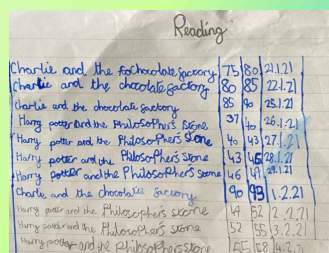 Reading
Charlie and the fochocolate factory 75 80 21.1.21
Charlie and the chocolate factory 80 85 22.1.21
Charlie and the chocolate factory 85 90 25.1.21
Harry potter and the Philosopher's Stone 37 40 26.1.21
Harry potter and the Philosopher's Stone 40 43 27.1.21
Harry potter and the Philosopher's Stone 43 46 28.1.21
Harry potter and the Philosopher's Stone 46 49 29.1.21
Charlie and the chocolate factory 90 93 1.2.21
Harry potter and the Philosopher's stone 49 52 2.2.21
Harry potter and the Philosopher's stone 52 55 3.2.21
Harry potter and the Philosopher's stone 55 58 4.2.21